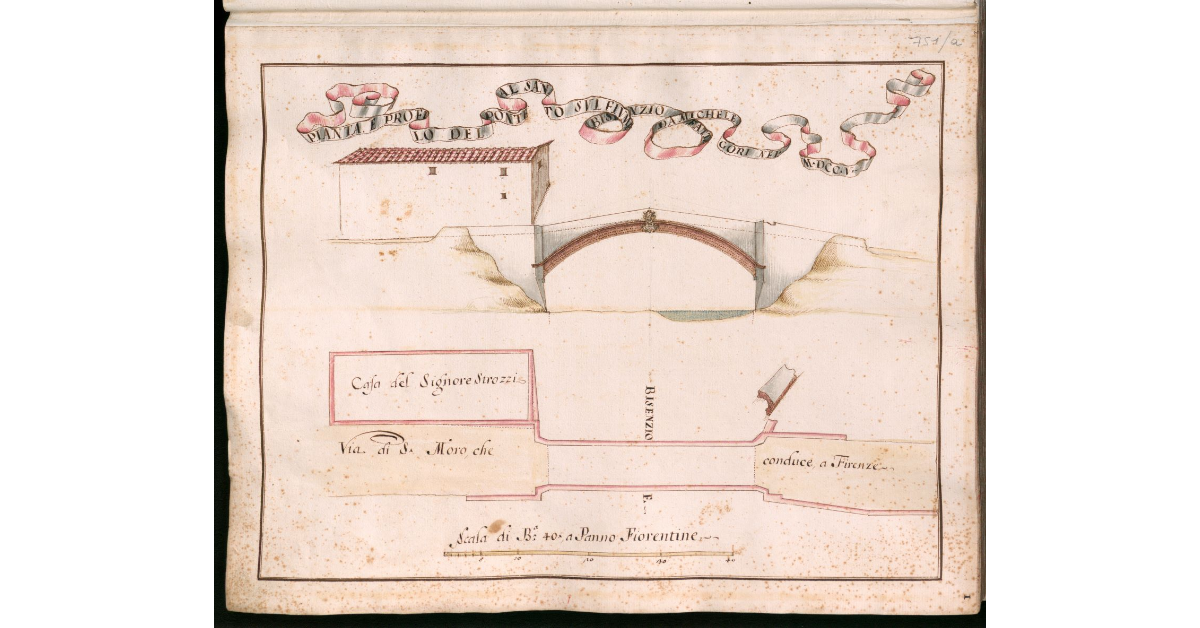 751/a
PIANTA, E PROFI
LO DEL PONT AL SAN
PO SVL BISENZIO DA MICHELE
GORI NEL M·DCC·V·
Casa del Signore Strozzi
BISENZIO
Via di S. Moro che
conduce a Firenze
F.
Scala di B.ª 40 a Panno Fiorentine
10
40
1